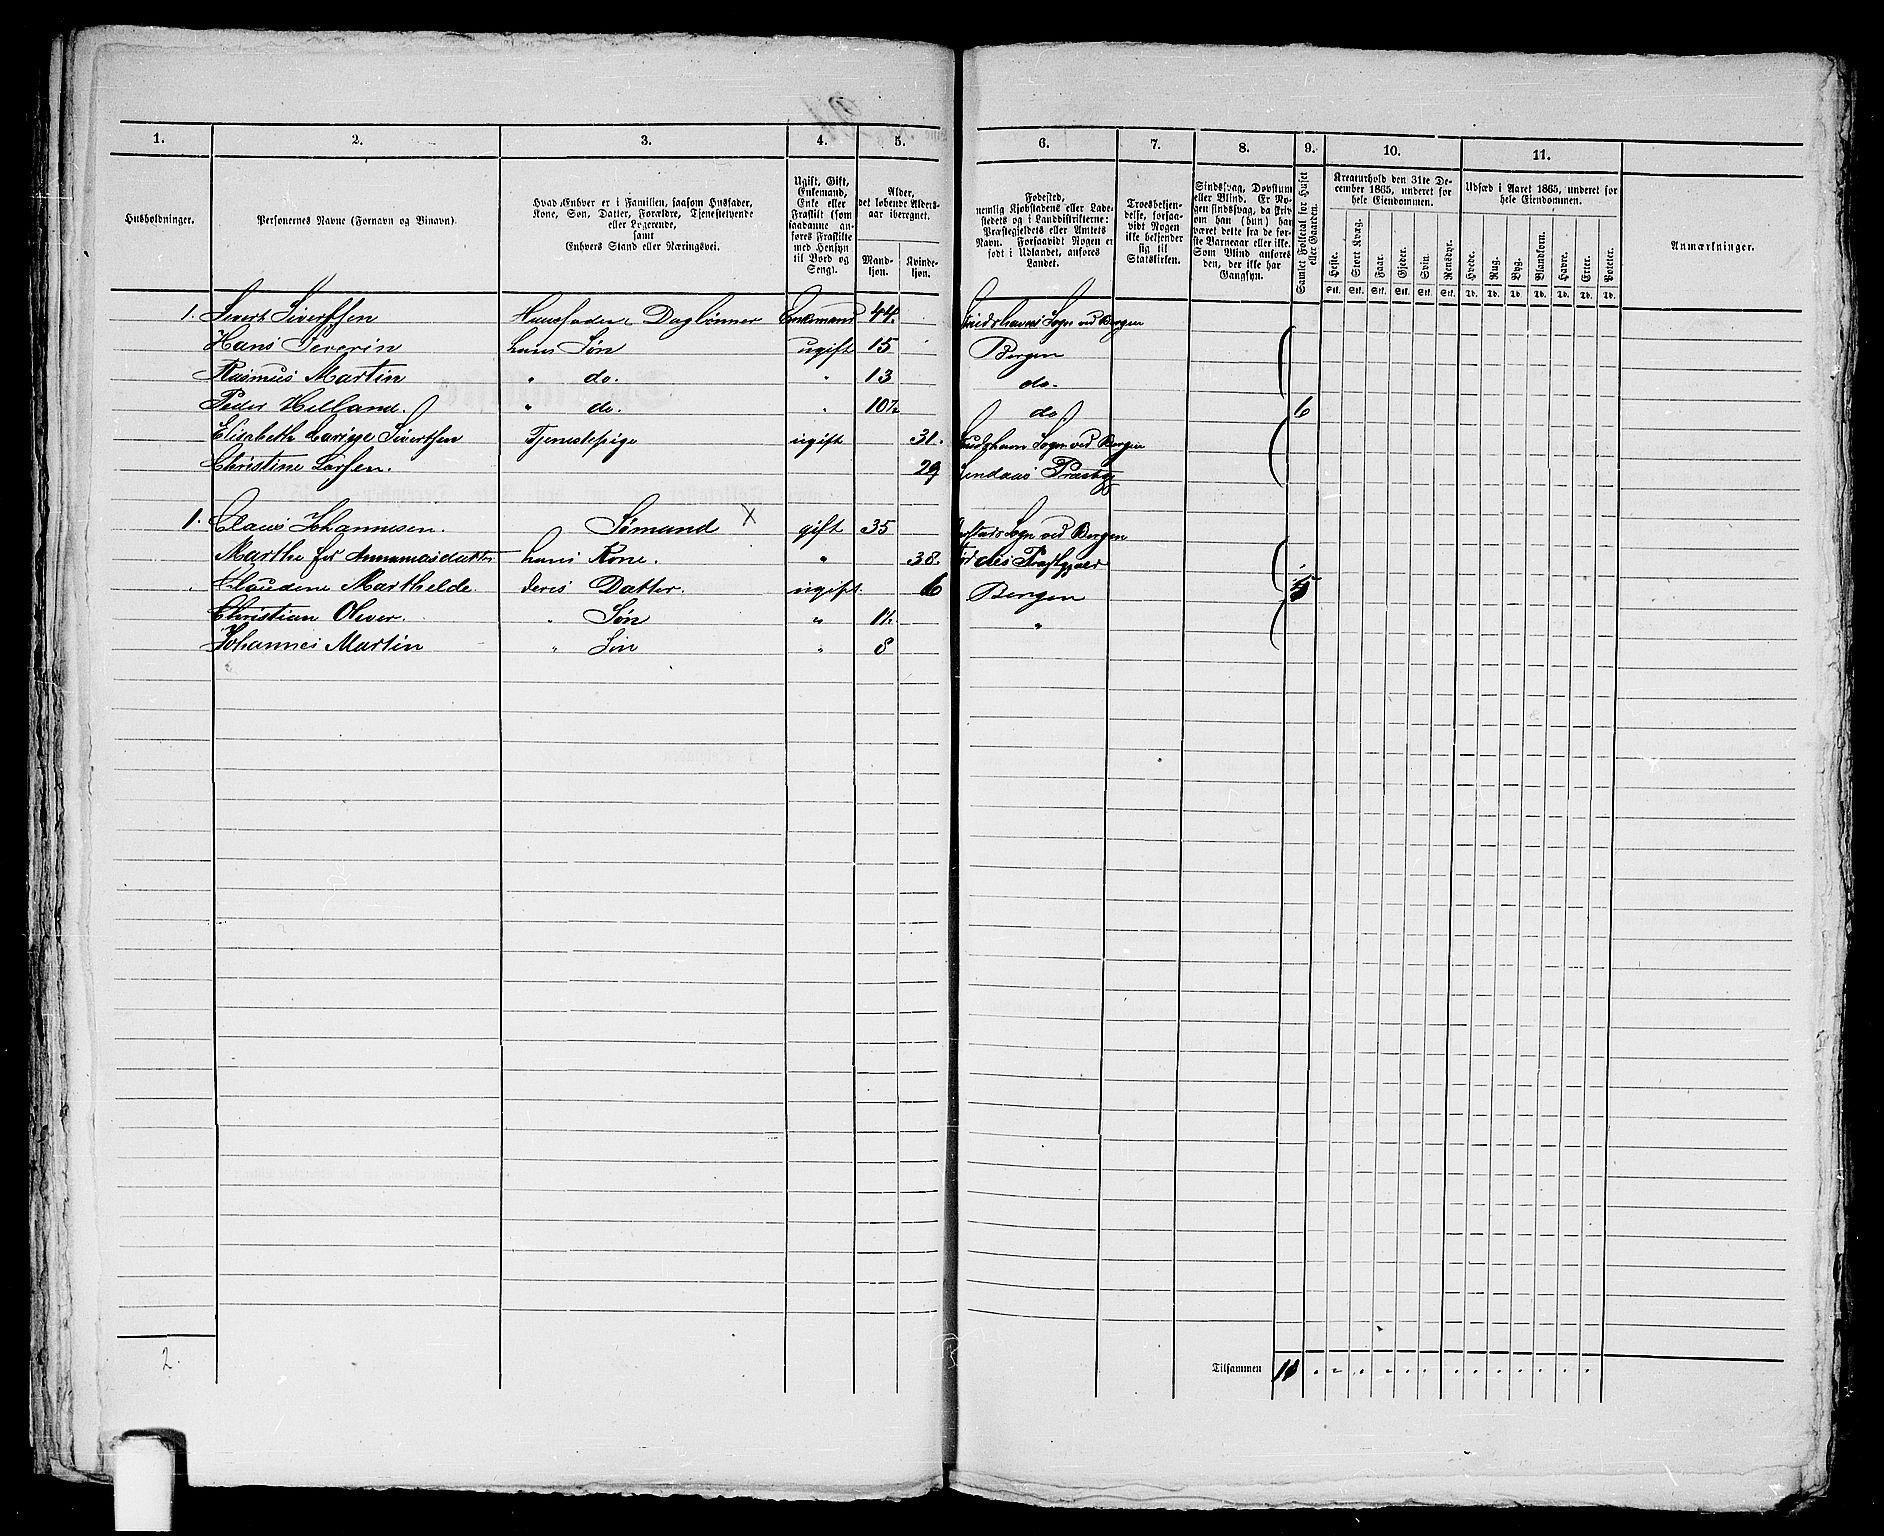 1. 2. 3. 4. 5. 6. 7. 8. 9. 10. 11.
Husholdninger.
Personernes Navne (Fornavn og Binavn).
Hvad Enhver er i Familien, saasom Husfader, Kone, Søn, Datter, Forældre, Tjenestetyende eller Logerende, samt Enhvers Stand eller Næringsvei.
Ugift, Gift, Enkemand, Enke eller Fraskilt (som saadanne anføres Fraskilte med Hensyn til Bord og Seng).
Alder, det løbende Aldersaar iberegnet.
Mandkjøn. Kvindekjøn.
Fødested, nemlig Kjøbstadens eller Ladestedets og i Landdistrikterne: Præstegjeldets eller Amtets Navn. Forsaavidt Nogen er født i Udlandet, anføres Landet.
Troesbekjendelse, forsaavidt Nogen ikke bekjender sig til Statskirken.
Sindssvag, Døvstum eller Blind. Er Nogen sindssvag, da skriv om han (hun) har været dette fra de første Barneaar eller ikke. Som Blind anføres den, der ikke har Gangsyn.
Samlet Folketal for Huset eller Gaarden.
Kreaturhold den 31te December 1865, underet for hele Eiendommen.
Heste. Stort Kvæg. Faar. Gjeder. Svin. Rensdyr.
Stk. Stk. Stk. Stk. Stk. Stk.
Udsæd i Aaret 1865, underet for hele Eiendommen.
Hvede. Rug. Byg. Blandkorn. Havre. Erter. Poteter.
Td. Td. Td. Td. Td. Td. Td.
Anmærkninger.
1. Sivert Sivertsen Huusfader, Daglønner Enkemand 44. Sogn ved Bergen
Hans Severin hans Søn ugift 15 Bergen
Rasmus Martin " do. " 13 do.
Peder Helland. " do. " 10 do. 6
Elisabeth Sivertsen Tjenestepige ugift 31. Sogn ved Bergen
Christine Larsen. 29
1. Claus Johannesen. Sømand X gift 35 Sogn ved Bergen
Marthe hans Kone. " 38.
Claudene Marthelde. deres Datter. ugift. 6 Bergen 5
Christian Olever. " Søn " 11. "
Johannes Martin " Søn " 8
2.
Tilsammen 11